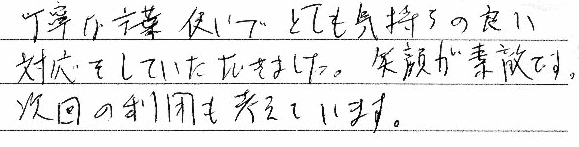 丁寧な言葉使いでとても気持ちの良い
対応をしていただきました。笑顔が素敵です。
次回の利用も考えています。